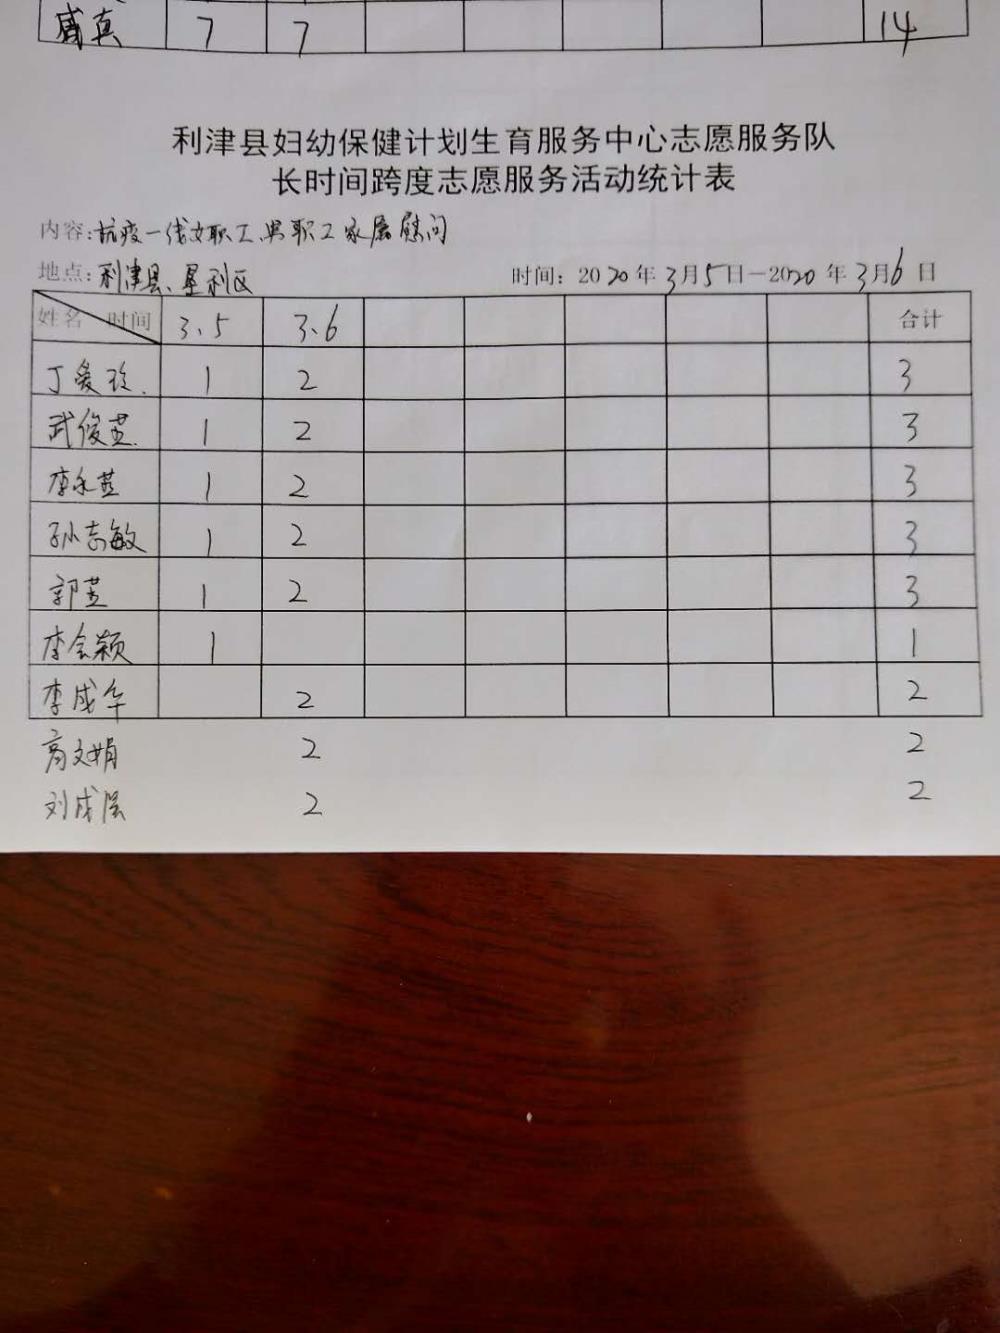 戚真 7 7 14
利津县妇幼保健计划生育服务中心志愿服务队
长时间跨度志愿服务活动统计表
内容:抗疫一线女职工男职工家属慰问
地点:利津县、垦利区 时间:2020年3月5日-2020年3月6日
姓名 时间 3.5 3.6 合计
丁爱玲 1 2 3
武俊英 1 2 3
李永英 1 2 3
孙志敏 1 2 3
郭英 1 2 3
李会颖 1 1
李成华 2 2
高文娟 2 2
刘成 2 2